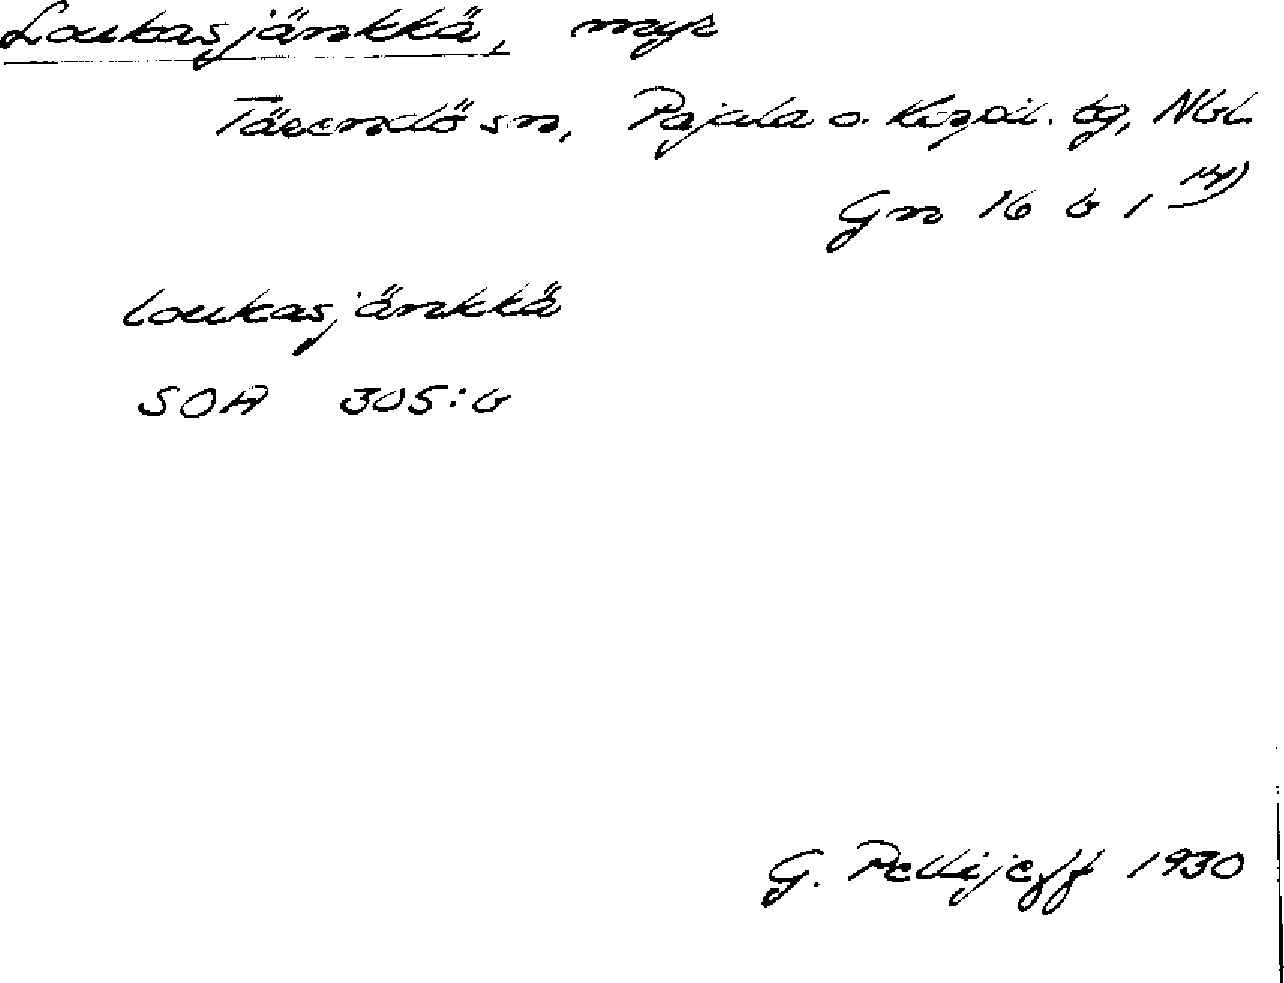 Loukasjänkkä, myr
Tärendö sn, Pajala o. Korpil. tg, Nbl.
Gn 16 b 1
loukasjänkkä
SOA 305:b
G. Pellijeff 1930